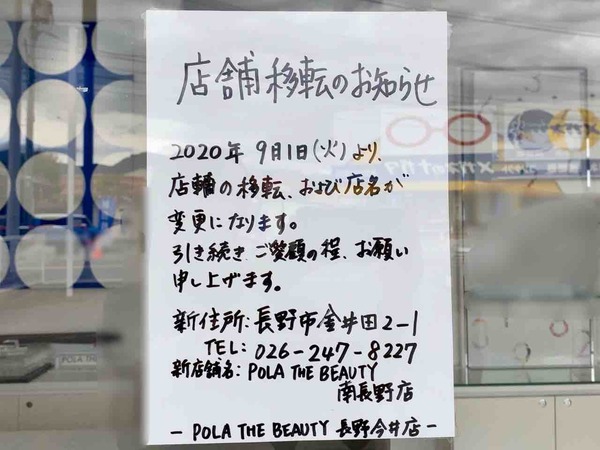 店舗移転のお知らせ
2020年 9月1日(火)より、
店輔の移転、および店名が
変更になります。
引き続きご愛顧の程、お願い
申し上げます。
新住所:長野市金井田2-1
TEL: 026-247-8227
新店舗名: POLA THE BEAUTY
南長野店
- POLA THE BEAUTY 長野今井店 -
POLA THE